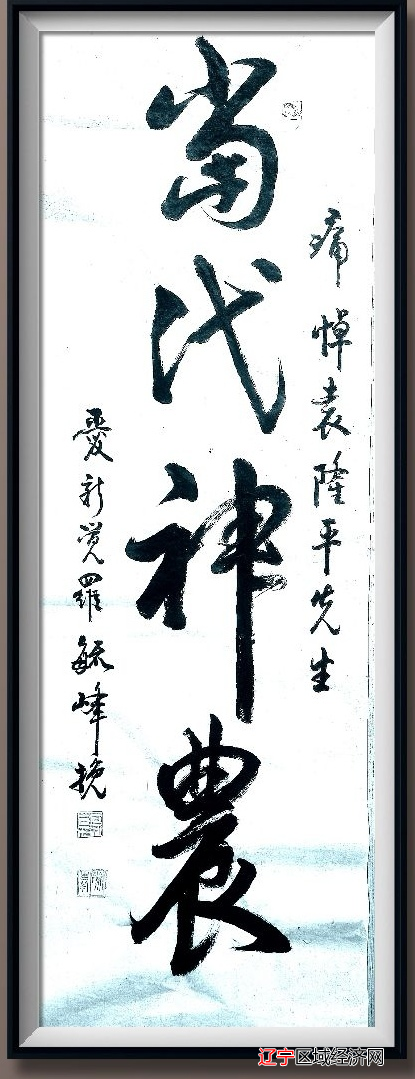 痛悼袁隆平先生
當代神農
愛新觉羅毓峰挽
辽宁区域经济网